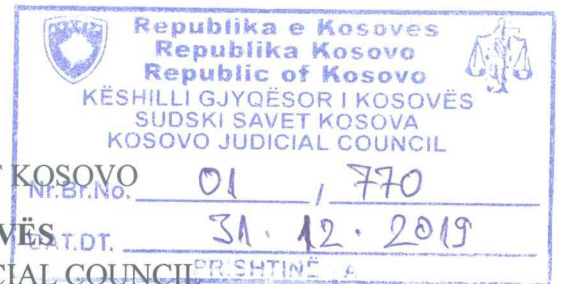 Republika e Kosovës
Republika Kosovo
Republic of Kosovo
KËSHILLI GJYQËSOR I KOSOVËS
SUDSKI SAVET KOSOVA
KOSOVO JUDICIAL COUNCIL
KOSOVO
Nr.Br.No. 01 / 770
VËS
DAT.DT. 31.12.2019
CIAL COUNCIL
PRISHTINË